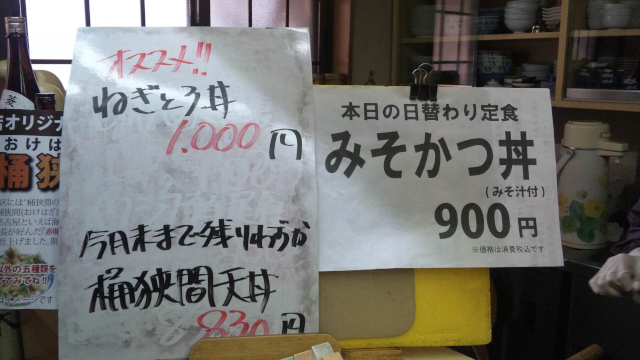 オススメ!!
ねぎとろ丼
1,000円
今月末まで残りわずか
桶狭間天丼
830円
本日の日替わり定食
みそかつ丼
(みそ汁付)
900円
※価格は消費税込です
おけは
桶狭